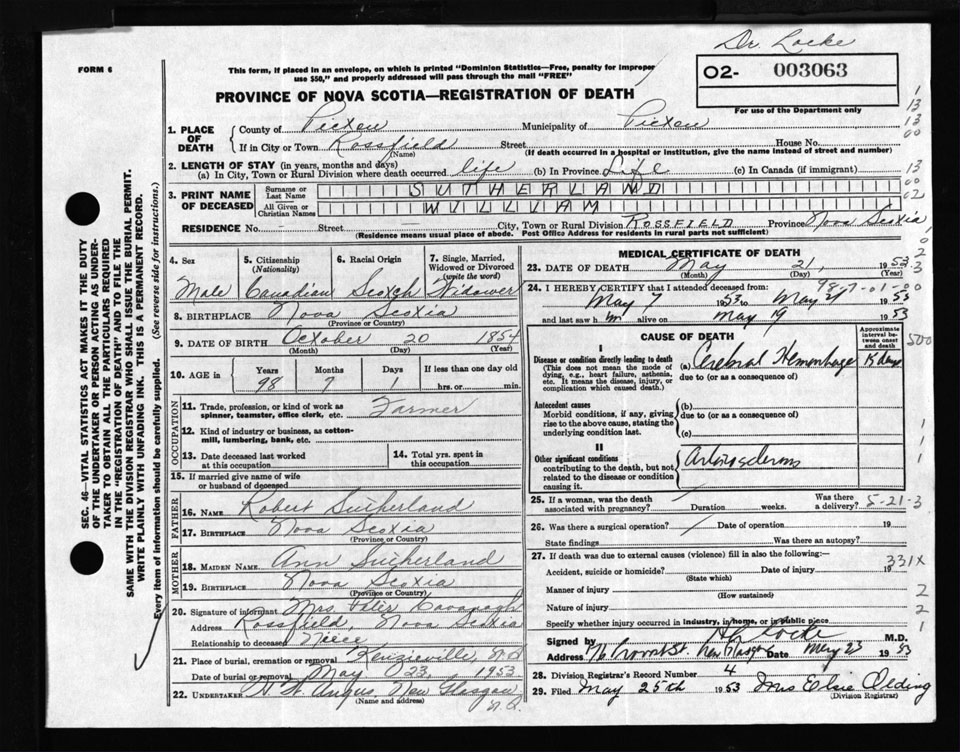 Dr. Locke
FORM 6
This form, if placed in an envelope, on which is printed "Dominion Statistics—Free, penalty for improper
use $50," and properly addressed will pass through the mail "FREE"
O2- 003063
For use of the Department only
PROVINCE OF NOVA SCOTIA—REGISTRATION OF DEATH
1. PLACE OF DEATH { County of Pictou Municipality of Pictou
If in City or Town Rossfield (Name) Street House No.
(If death occurred in a hospital or institution, give the name instead of street and number)
2. LENGTH OF STAY (in years, months and days)
(a) In City, Town or Rural Division where death occurred life (b) In Province Life (c) In Canada (if immigrant)
3. PRINT NAME OF DECEASED { Surname or Last Name SUTHERLAND
All Given or Christian Names WILLIAM
RESIDENCE No. - Street City, Town or Rural Division ROSSFIELD Province Nova Scotia
(Residence means usual place of abode. Post Office Address for residents in rural parts not sufficient)
4. Sex Male
5. Citizenship (Nationality) Canadian
6. Racial Origin Scotch
7. Single, Married, Widowed or Divorced (write the word) Widower
8. BIRTHPLACE Nova Scotia
(Province or Country)
9. DATE OF BIRTH October 20 1854
(Month) (Day) (Year)
10. AGE in { Years 98 Months 7 Days 1 If less than one day old hrs. or min.
OCCUPATION
11. Trade, profession, or kind of work as spinner, teamster, office clerk, etc. Farmer
12. Kind of industry or business, as cotton-mill, lumbering, bank, etc.
13. Date deceased last worked at this occupation
14. Total yrs. spent in this occupation
15. If married give name of wife or husband of deceased
FATHER
16. NAME Robert Sutherland
17. BIRTHPLACE Nova Scotia
(Province or Country)
MOTHER
18. MAIDEN NAME Ann Sutherland
19. BIRTHPLACE Nova Scotia
(Province or Country)
20. Signature of informant Mrs. Peter Cavanagh
Address Rossfield, Nova Scotia
Relationship to deceased Niece
21. Place of burial, cremation or removal Kenzieville, N.S.
Date of burial or removal May 23, 1953
22. UNDERTAKER Angus, New Glasgow
(Name and address) N.S.
MEDICAL CERTIFICATE OF DEATH
23. DATE OF DEATH May 21, 1953
(Month) (Day) (Year)
24. I HEREBY CERTIFY that I attended deceased from:
May 7 1953 to May 21 1953
and last saw him alive on May 19 1953
CAUSE OF DEATH
Approximate interval between onset and death
I
Disease or condition directly leading to death
(This does not mean the mode of dying, e.g., heart failure, asthenia, etc. It means the disease, injury, or complication which caused death.)
(a) Cerebral Hemorrhage 15 days
due to (or as consequence of)
Antecedent causes
Morbid conditions, if any, giving rise to the above cause, stating the underlying condition last.
(b)
due to (or as consequence of)
(c)
II
Other significant conditions
contributing to the death, but not related to the disease or condition causing it.
25. If a woman, was the death associated with pregnancy? Duration weeks. Was there a delivery?
5-21-3
26. Was there a surgical operation? Date of operation 19
State findings Was there an autopsy?
27. If death was due to external causes (violence) fill in also the following:—
331X
Accident, suicide or homicide? (State which) Date of injury 19
Manner of injury
(How sustained)
Nature of injury
Specify whether injury occurred in industry, in home, or in public place
Signed by Locke M.D.
Address New Glasgow Date May 23 1953
28. Division Registrar's Record Number 4
29. Filed May 25th 1953 Mrs Elsie Olding
(Division Registrar)
SEC. 46—VITAL STATISTICS ACT MAKES IT THE DUTY
OF THE UNDERTAKER OR PERSON ACTING AS UNDER-
TAKER TO OBTAIN ALL THE PARTICULARS REQUIRED
IN THE "REGISTRATION OF DEATH" AND TO FILE THE
SAME WITH THE DIVISION REGISTRAR WHO SHALL ISSUE THE BURIAL PERMIT.
WRITE PLAINLY WITH UNFADING INK. THIS IS A PERMANENT RECORD.
Every item of information should be carefully supplied. (See reverse side for instructions.)